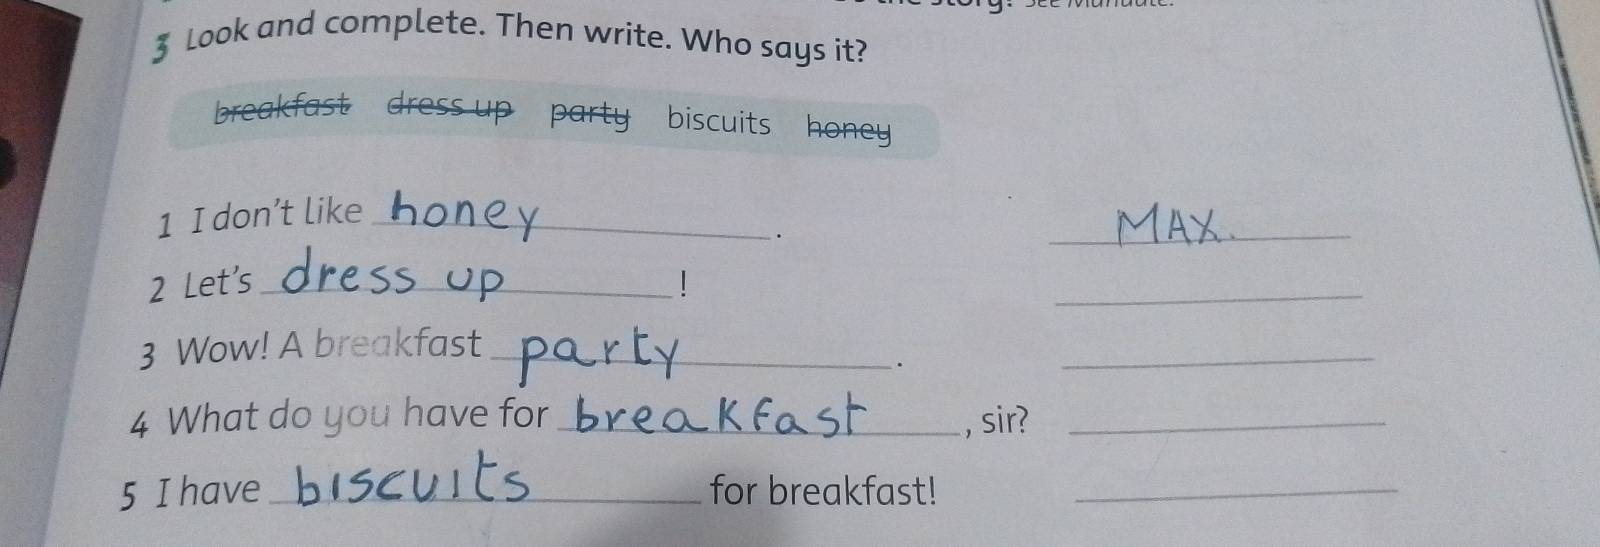 3 Look and complete. Then write. Who says it?
breakfast dress up party biscuits honey
1 I don't like honey. MAX.
2 Let's dress up!
3 Wow! A breakfast party.
4 What do you have for breakfast, sir?
5 I have biscuits for breakfast!